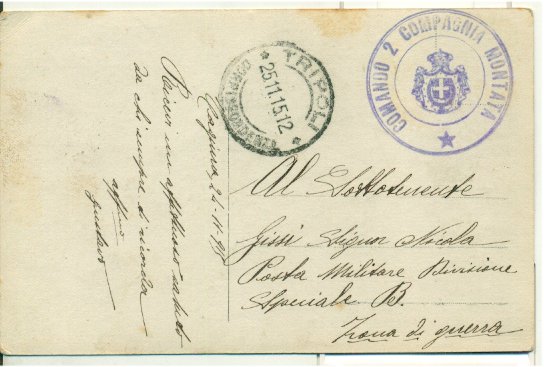 COMANDO 2 COMPAGNIA MONTATA
TRIPOLI
25.11.15.12
Tagiura, 24-11-915
Ricevi un affettuoso saluto
da chi sempre ti ricorda
aff.mo
Gustavo
Al Sottotenente
Gissi Signor Nicola
Posta Militare Divisione
Speciale B.
Zona di guerra